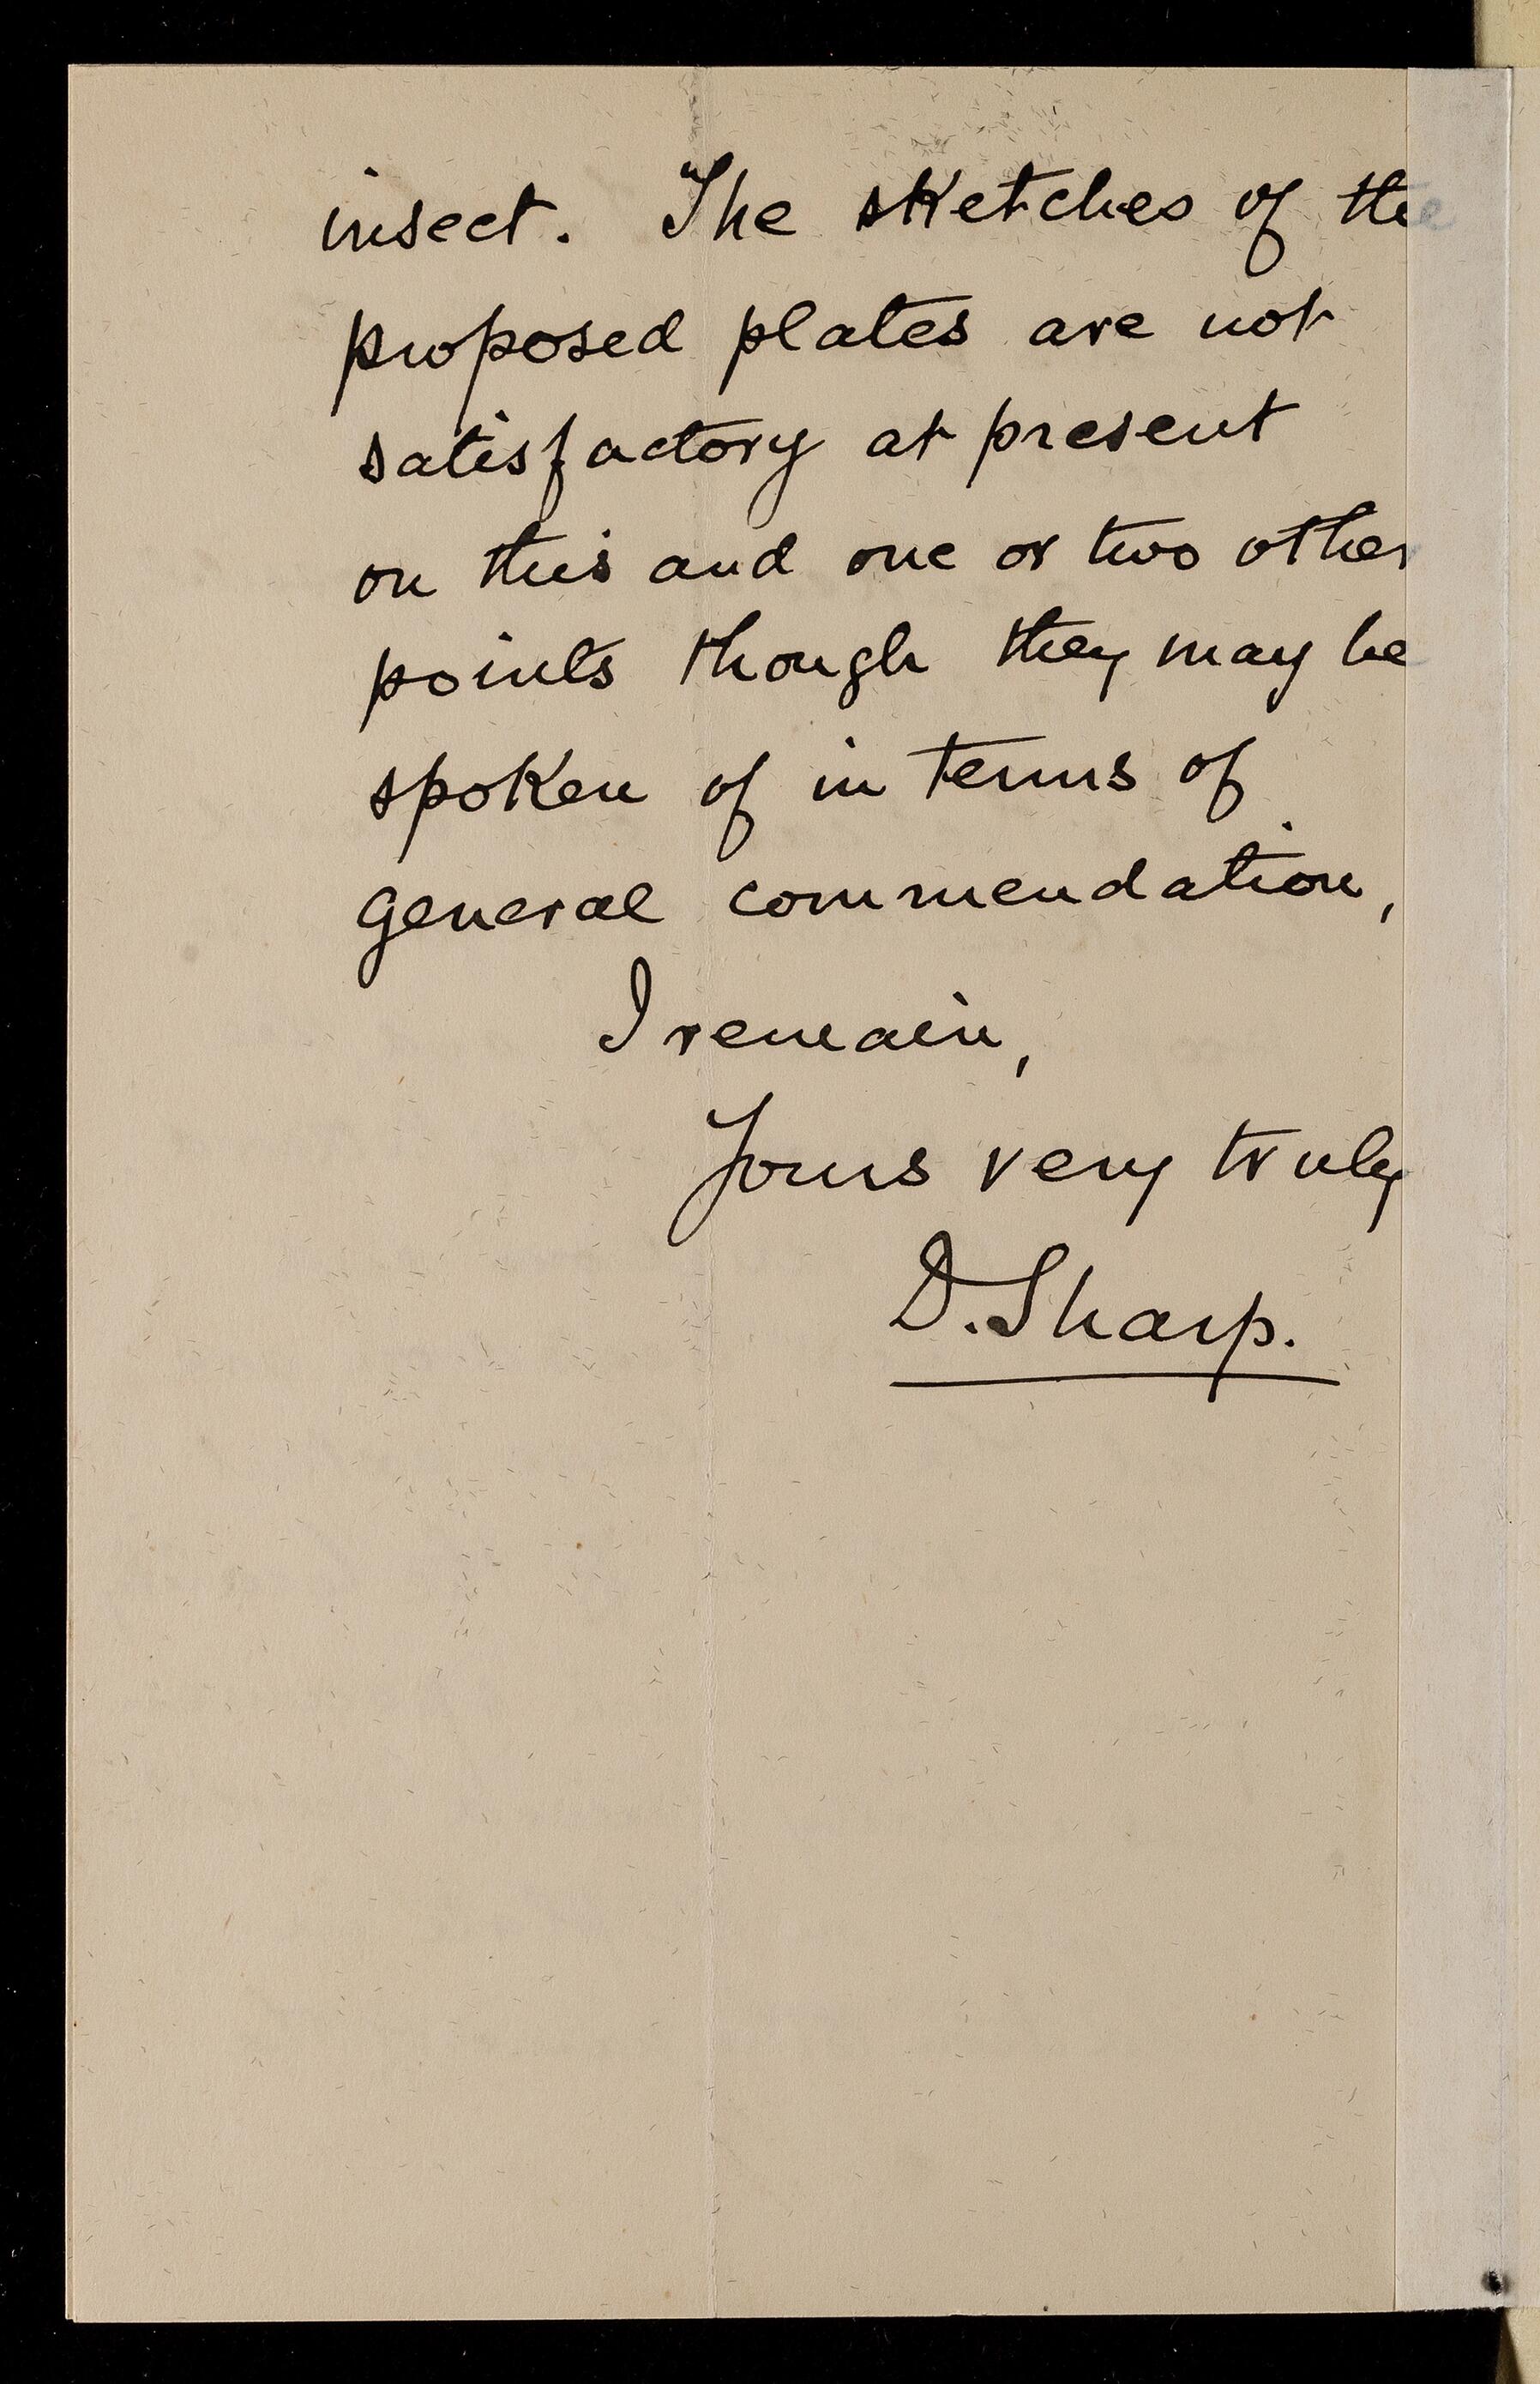 insect. The sketches of the
proposed plates are not
satisfactory at present
on this and one or two other
points though they may be
spoken of in terms of
general commendation,
I remain,
Yours very truly
D. Sharp.